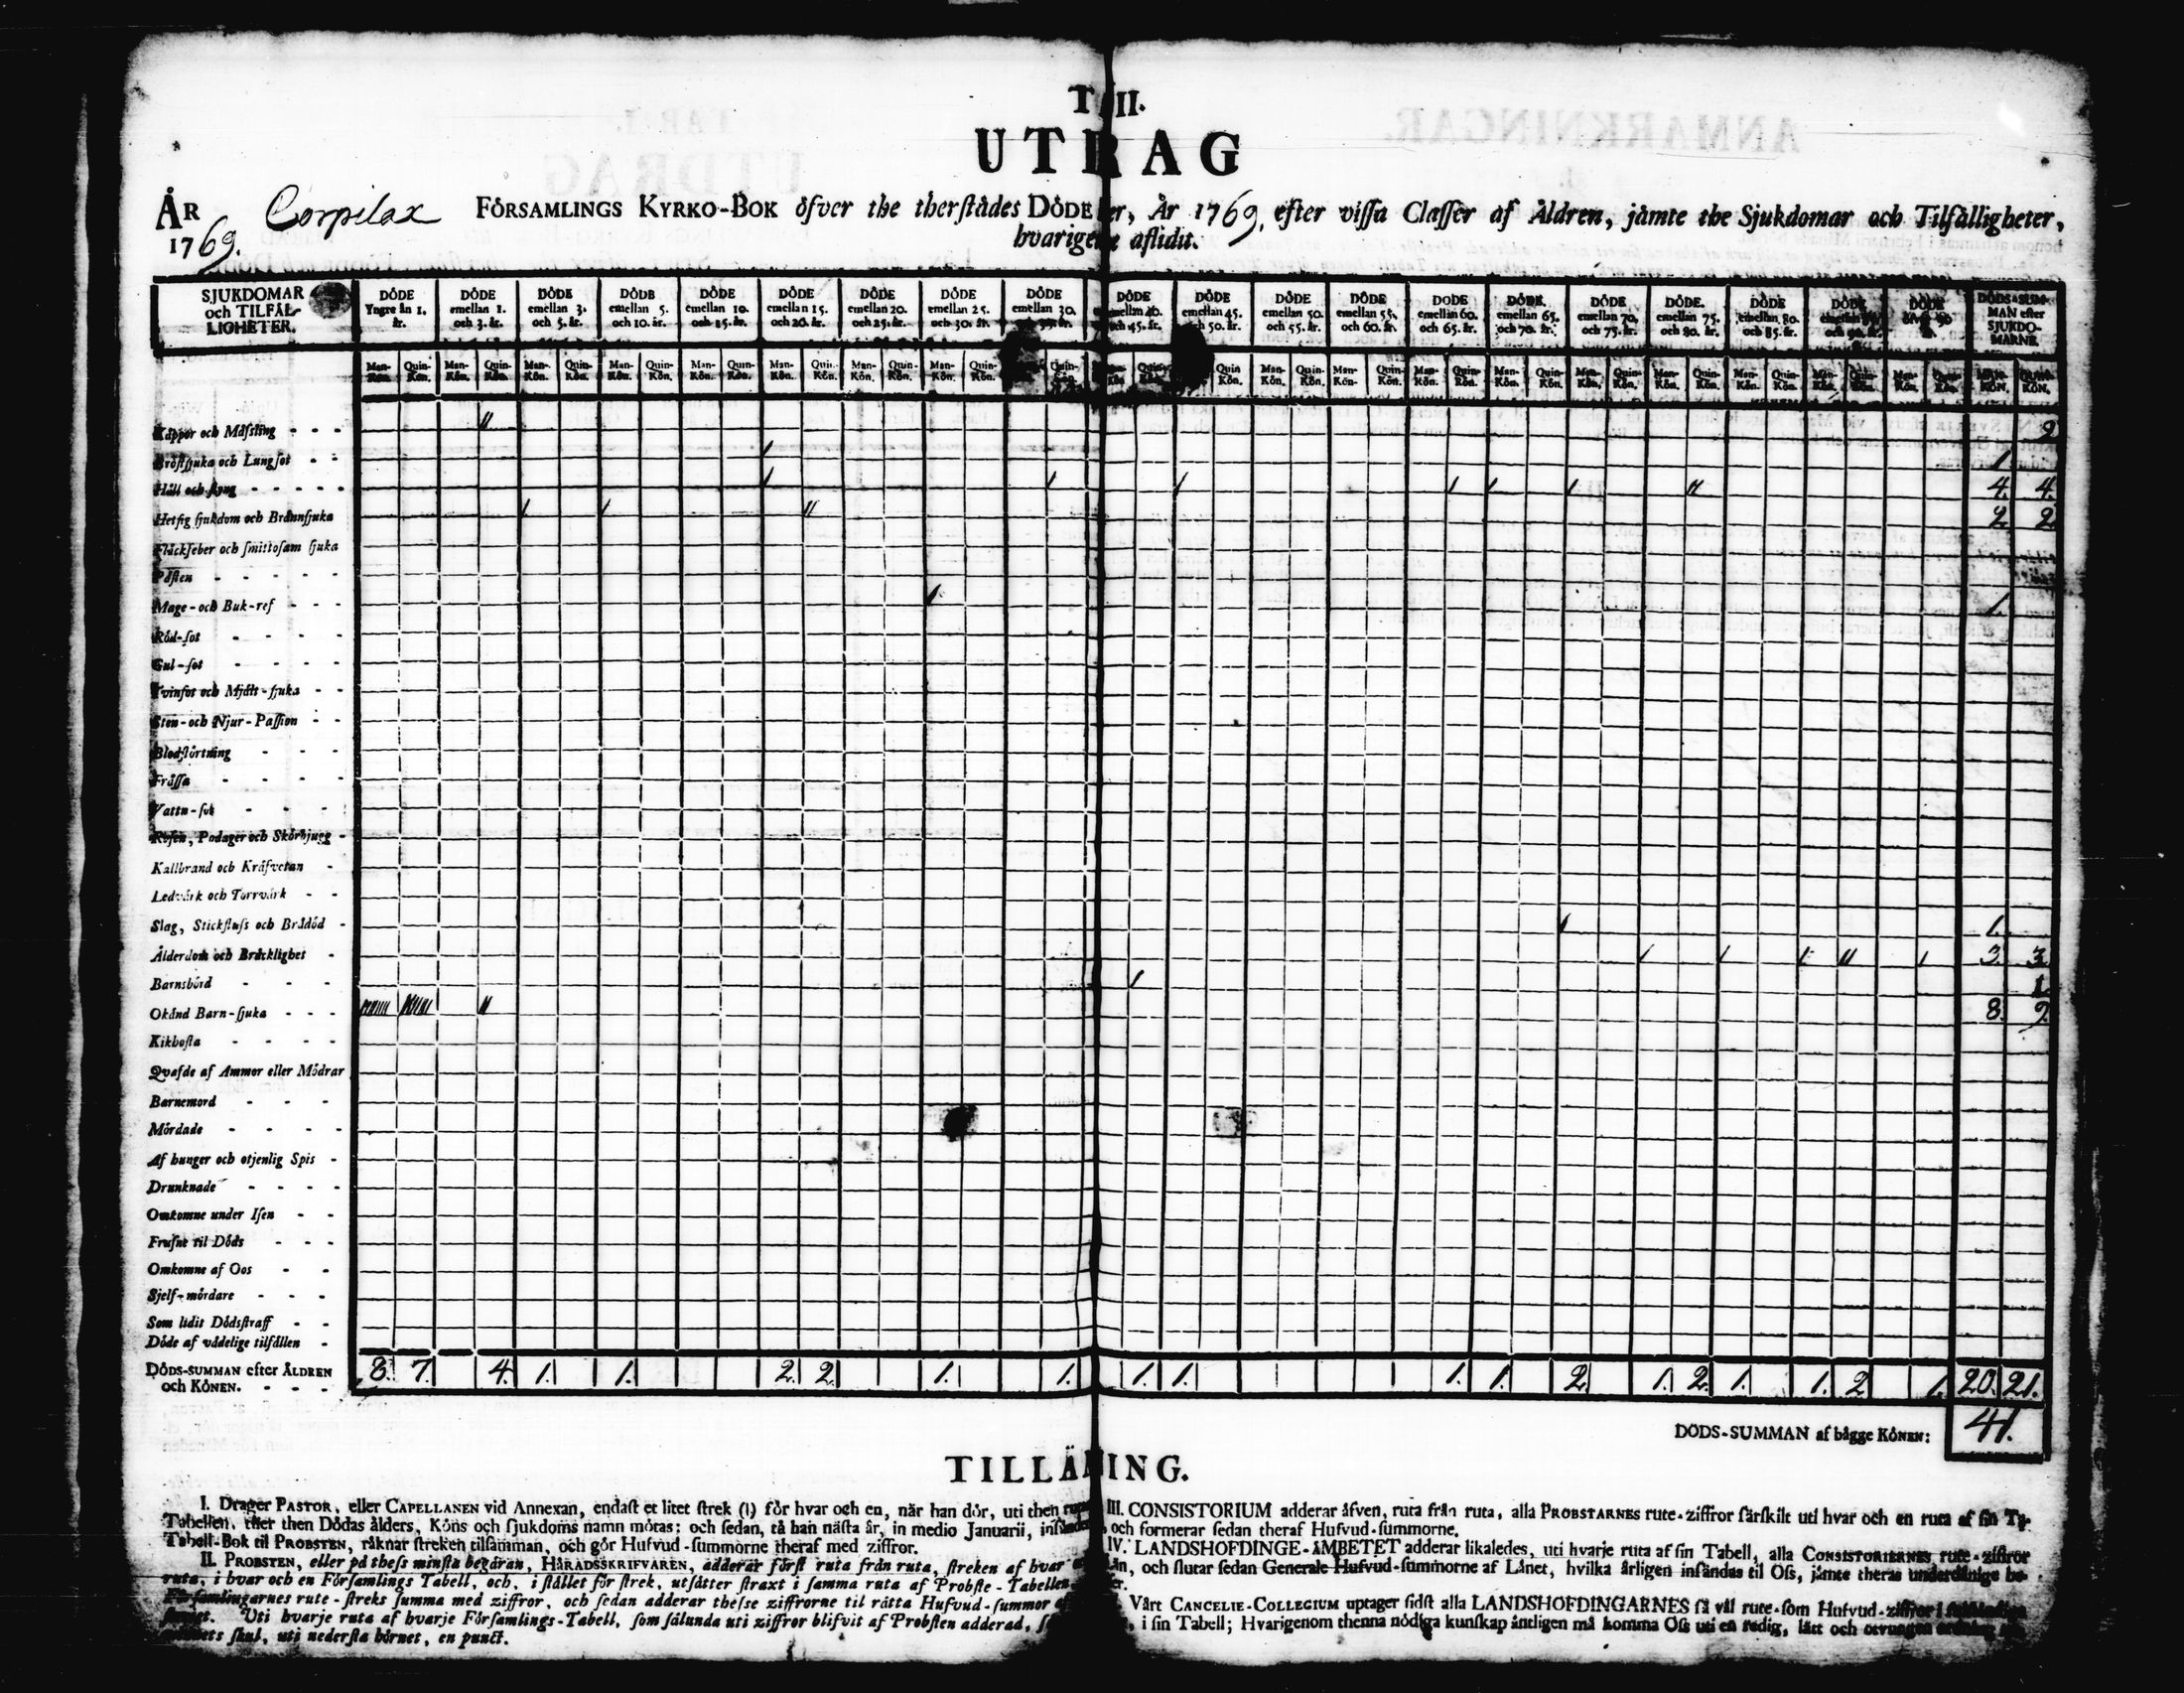 T II.
UT RAG
ÅR Corpilax FÖRSAMLINGS KYRKO-BOK öfver the therstädes DÖDE er, År 1769, efter vissa Classer af Åldren, jämte the Sjukdomar och Tilfälligheter,
1769. hvarige aflidit.
SJUKDOMAR och TILFÄL-LIGHETER.
DÖDE Yngre än 1. år. DÖDE emellan 1. och 3. år. DÖDE emellan 3. och 5. år. DÖDE emellan 5. och 10. år. DÖDE emellan 10. och 15. år. DÖDE emellan 15. och 20. år. DÖDE emellan 20. och 25. år. DÖDE emellan 25. och 30. år. DÖDE emellan 30. DÖDE emellan 40. och 45. år. DÖDE emellan 45. och 50. år. DÖDE emellan 50. och 55. år. DÖDE emellan 55. och 60. år. DÖDE emellan 60. och 65. år. DÖDE emellan 65. och 70. år. DÖDE emellan 70. och 75. år. DÖDE. emellan 75. och 80. år. DÖDE emellan 80. och 85. år. DÖDE DÖDE DÖDS-SUM-MAN efter SJUKDO-MARNE.
Man-Kön. Quin-Kön. Man-Kön. Quin-Kön. Man-Kön. Quin-Kön. Man-Kön. Quin-Kön. Man-Kön. Quin-Kön. Man-Kön. Quin-Kön. Man-Kön. Quin-Kön. Man-Kön. Quin-Kön. Quin-Kön. Man-Kön Quin-Kön. Quin Kön. Man-Kön. Quin-Kön. Man-Kön. Quin-Kön. Man-Kön. Quin-Kön. Man-Kön. Quin-Kön. Man-Kön. Quin-Kön. Man-Kön. Quin-Kön. Man-Kön. Quin-Kön. Man-Kön. Quin-Kön. Man-Kön. Quin-Kön. MAN-KÖN. QUIN-KÖN.
Koppor och Mässling - - - || 2
Bröstsjuka och Lungsot - - | 1.
Håll och styng - - - - - | | | | | | || 4. 4.
Hetsig sjukdom och Brännsjuka | | || 2 2
Fläckfeber och smittosam sjuka
Pästen - - - - -
Mage- och Buk-ref - - - | 1.
Röd-sot - - - -
Gul-sot - - - -
Tvinsot och Mjält-sjuka - -
Sten- och Njur-Passion - -
Blodstörtning - - -
Frässa - - - -
Vattu-sot - - -
Rosen, Podager och Skörbjugg -
Kallbrand och Kräfvetan -
Ledvärk och Torrvärk - -
Slag, Stickfluss och Brådöd - | 1.
Ålderdom och Bräcklighet - | | | || | 3. 3.
Barnsbörd - - - | 1.
Okänd Barn-sjuka - - - |||||||| ||||||| || 8. 9.
Kikhosta - - - -
Qvafde af Ammor eller Mödrar
Barnemord - - -
Mördade - - - -
Af hunger och otjenlig Spis -
Drunknade - - - -
Omkomne under Isen - -
Frusne til Döds - - -
Omkomne af Oos - -
Sjelf-mördare - - -
Som lidit Dödsstraff - -
Döde af vådelige tilfällen -
DÖDS-SUMMAN efter ÅLDREN och KÖNEN. - - - 8. 7. 4. 1. 1. 2. 2. 1. 1. 1. 1. 1. 1. 2. 1. 2. 1. 1. 2 1. 20. 21.
DÖDS-SUMMAN af bägge KÖNEN: 41.
TILLÄ ING.
I. Drager PASTOR, eller CAPELLANEN vid Annexan, endast et litet strek (|) för hvar och en, när han dör, uti then
Tabellen, ther then Dödas ålders, Köns och sjukdoms namn mötas: och sedan, tå han nästa år, in medio Januarii,
Tabell-Bok til PROBSTEN, räknar streken tilsamman, och gör Hufvud-summorne theraf med ziffror.
II. PROBSTEN, eller på thess minsta begäran, HÄRADSSKRIFVAREN, adderar först ruta från ruta, streken af hvar
ruta, i hvar och en Församlings Tabell, och, i stället för strek, utsätter straxt i samma ruta af Probste-Tabellen
Församlingarnes rute-streks summa med ziffror, och sedan adderar thesse ziffrorne til rätta Hufvud-summor
Uti hvarje ruta af hvarje Församlings-Tabell, som sålunda uti ziffror blifvit af Probsten adderad,
skul, uti nedersta hörnet, en punct.
III. CONSISTORIUM adderar äfven, ruta från ruta, alla PROBSTARNES rute-ziffror särskilt uti hvar och en ruta af sin Ta-
och formerar sedan theraf Hufvud-summorne.
IV. LANDSHÖFDINGE-ÄMBETET adderar likaledes, uti hvarje ruta af sin Tabell, alla CONSISTORIERNES rute-ziffror
och slutar sedan Generale Hufvud-summorne af Länet, hvilka årligen insändas til Oss, jämte theras underdånige be-
Vårt CANCELIE-COLLEGIUM uptager sidst alla LANDSHÖFDINGARNES så väl rute-som Hufvud-ziffror i
i sin Tabell; Hvarigenom thenna nödiga kunskap äntligen må komma Oss uti en redig, lätt och otvungen